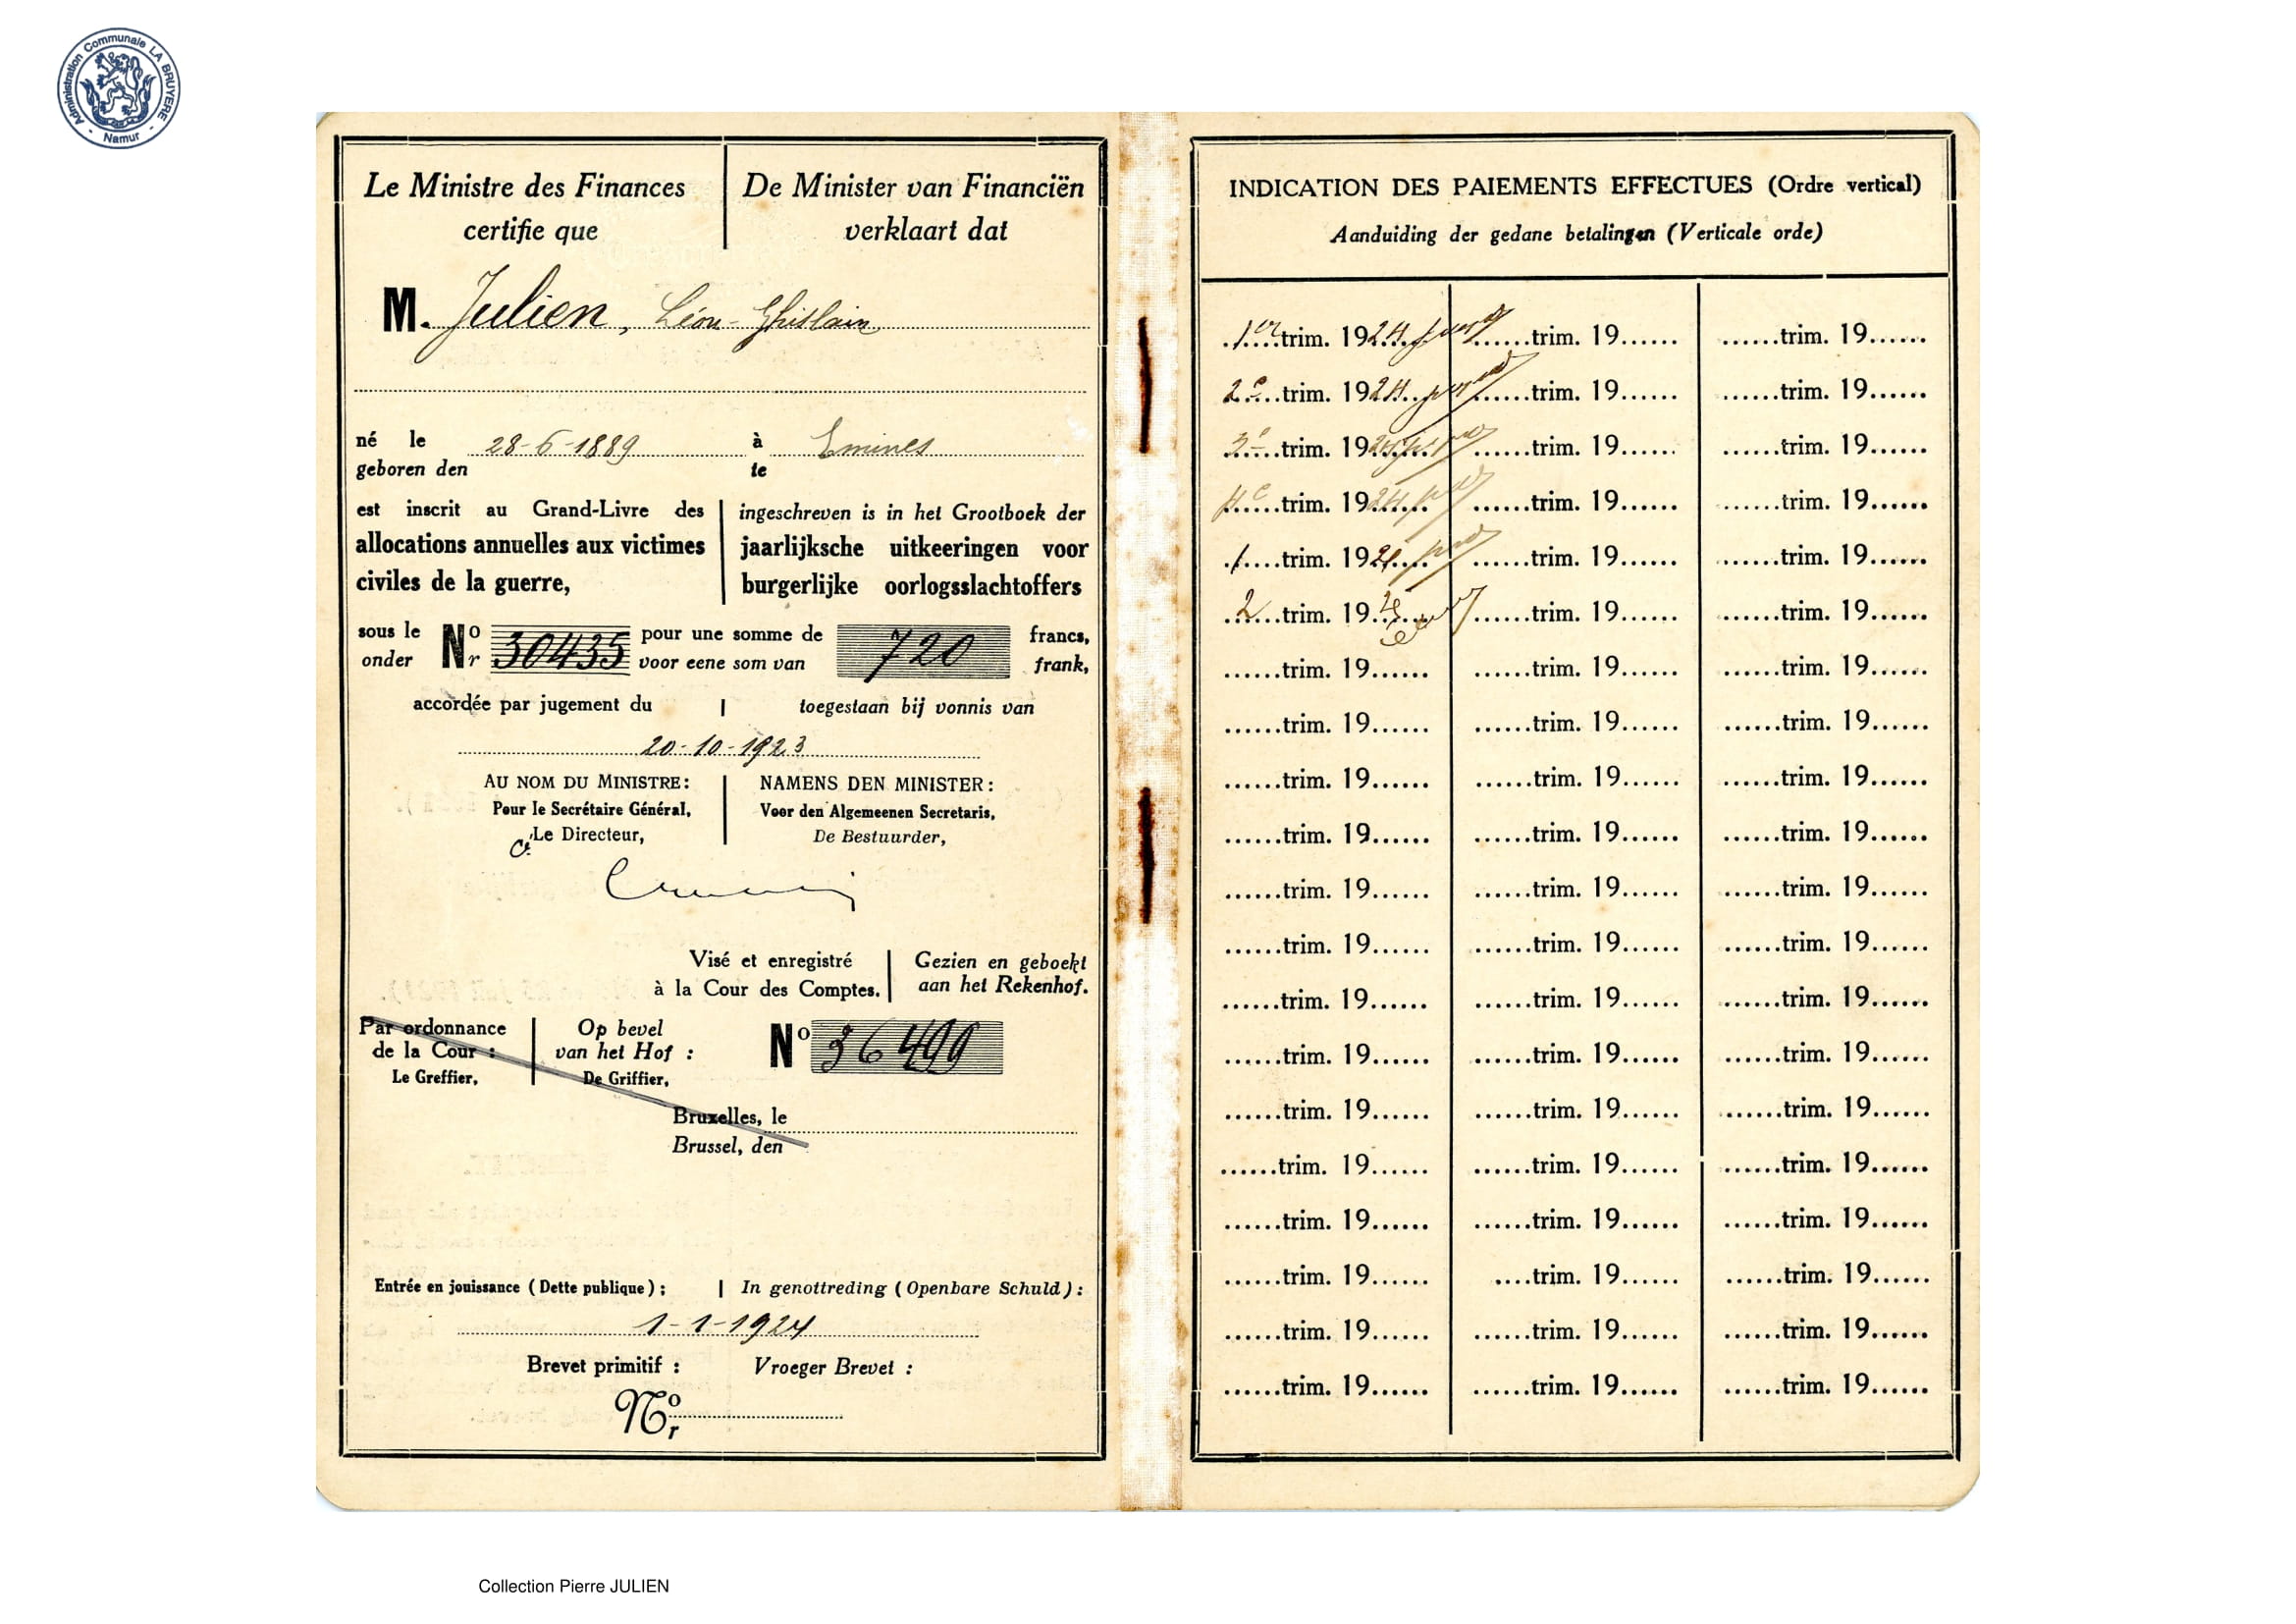 Administration Communale LA BRUYERE
- Namur -
Le Ministre des Finances
certifie que
De Minister van Financiën
verklaart dat
M. Julien, Léon-Ghislain
né le 28-6-1889 à Emines
geboren den te
est inscrit au Grand-Livre des
allocations annuelles aux victimes
civiles de la guerre,
ingeschreven is in het Grootboek der
jaarlijksche uitkeeringen voor
burgerlijke oorlogsslachtoffers
sous le No 30435 pour une somme de 720 francs,
onder Nr voor eene som van frank,
accordée par jugement du
toegestaan bij vonnis van
20-10-1923
AU NOM DU MINISTRE:
Pour le Secrétaire Général,
Le Directeur,
NAMENS DEN MINISTER:
Voor den Algemeenen Secretaris,
De Bestuurder,
Visé et enregistré
à la Cour des Comptes.
Gezien en geboekt
aan het Rekenhof.
Par ordonnance
de la Cour :
Le Greffier,
Op bevel
van het Hof :
De Griffier,
No 36499
Bruxelles, le
Brussel, den
Entrée en jouissance (Dette publique) ;
In genottreding (Openbare Schuld) :
1-1-1924
Brevet primitif : Vroeger Brevet :
No
r
INDICATION DES PAIEMENTS EFFECTUES (Ordre vertical)
Aanduiding der gedane betalingen (Verticale orde)
1er trim. 1924 ......trim. 19...... ......trim. 19......
2e trim. 1924 ......trim. 19...... ......trim. 19......
3e trim. 1924 ......trim. 19...... ......trim. 19......
4e trim. 1924 ......trim. 19...... ......trim. 19......
1 trim. 192 ......trim. 19...... ......trim. 19......
2 trim. 19 ......trim. 19...... ......trim. 19......
......trim. 19...... ......trim. 19...... ......trim. 19......
......trim. 19...... ......trim. 19...... ......trim. 19......
......trim. 19...... ......trim. 19...... ......trim. 19......
......trim. 19...... ......trim. 19...... ......trim. 19......
......trim. 19...... ......trim. 19...... ......trim. 19......
......trim. 19...... ......trim. 19...... ......trim. 19......
......trim. 19...... ......trim. 19...... ......trim. 19......
......trim. 19...... ......trim. 19...... ......trim. 19......
......trim. 19...... ......trim. 19...... ......trim. 19......
......trim. 19...... ......trim. 19...... ......trim. 19......
......trim. 19...... ......trim. 19...... ......trim. 19......
......trim. 19...... ....trim. 19...... ......trim. 19......
......trim. 19...... ......trim. 19...... ......trim. 19......
......trim. 19...... ......trim. 19...... ......trim. 19......
Collection Pierre JULIEN